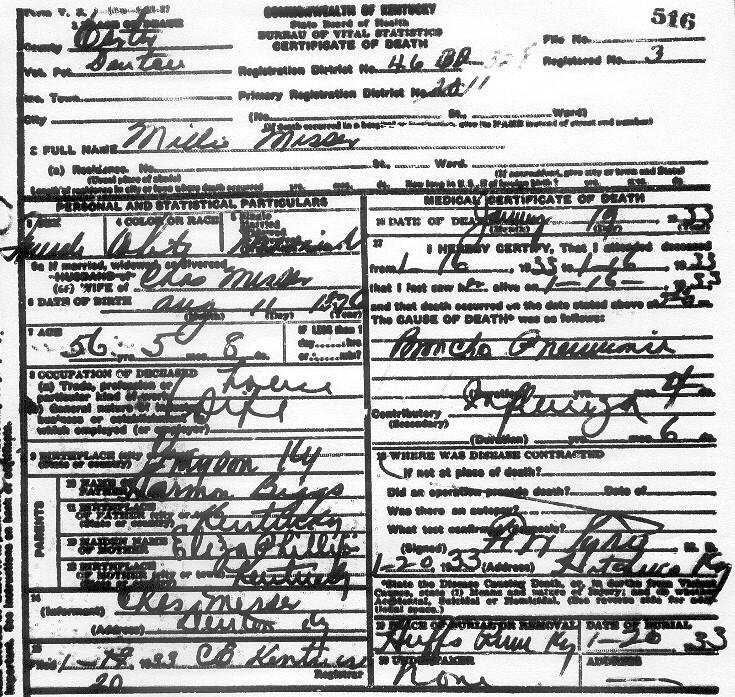 Form V. S.
COMMONWEALTH OF KENTUCKY
State Board of Health
BUREAU OF VITAL STATISTICS
CERTIFICATE OF DEATH
516
1 PLACE OF DEATH
County
File No.
Registered No. 3
Vot. Pct. Denton
Registration District No. 460
Inc. Town
Primary Registration District No.
City
(No. St., Ward)
2 FULL NAME Millie Messer
(a) Residence. No. St., Ward.
(Usual place of abode)
(If nonresident, give city or town and State)
Length of residence in city or town where death occurred yrs. mos. ds. How long in U. S., if of foreign birth? yrs. mos. ds.
PERSONAL AND STATISTICAL PARTICULARS
3 SEX
4 COLOR OR RACE
5 Single
Married
Female White Married
5a If married, widowed or divorced
HUSBAND of
(or) WIFE of Chas Messer
6 DATE OF BIRTH Aug 11 1876
(Month) (Day) (Year)
7 AGE
56 yrs. 5 mos. 8 ds.
IF LESS than 1
day hrs.
or min?
8 OCCUPATION OF DECEASED
(a) Trade, profession or
particular kind of work House
(b) General nature of
business or Wife
which employed (or employer)
9 BIRTHPLACE (city
(State or country) Grayson Ky
PARENTS
10 NAME OF
FATHER Harmon Biggs
11 BIRTHPLACE
OF FATHER (city or town)
(State or country) Kentucky
12 MAIDEN NAME
OF MOTHER Eliza Phillips
13 BIRTHPLACE
OF MOTHER (city or town)
(State or country) Kentucky
14
(Informant) Chas Messer
(Address) Denton Ky
15
Filed 1-19, 1933
20
Registrar
MEDICAL CERTIFICATE OF DEATH
16 DATE OF DEATH January 19 1933
(Month) (Day) (Year)
17
I HEREBY CERTIFY, That I attended deceased
from 1-16, 1933 to 1-16-, 1933
that I last saw her alive on 1-16-, 1933
and that death occurred on the date stated above at m.
The CAUSE OF DEATH* was as follows:
Broncho Pneumonia
(Duration) yrs. mos. 4 ds.
Contributory Influenza
(Secondary)
(Duration) yrs. mos. 6 ds.
18 WHERE WAS DISEASE CONTRACTED
If not at place of death?
Did an operation precede death? Date of
Was there an autopsy?
What test confirmed diagnosis?
(Signed) M. D.
1-20, 1933 (Address) Hitchins Ky
*State the Disease Causing Death, or, in deaths from Violent
Causes, state (1) Means and nature of Injury; and (2) whether
Accidental, Suicidal or Homicidal. (See reverse side for additional space.)
19 PLACE OF BURIAL OR REMOVAL
DATE OF BURIAL
Huffs Run Ky 1-20 1933
20 UNDERTAKER
ADDRESS
None